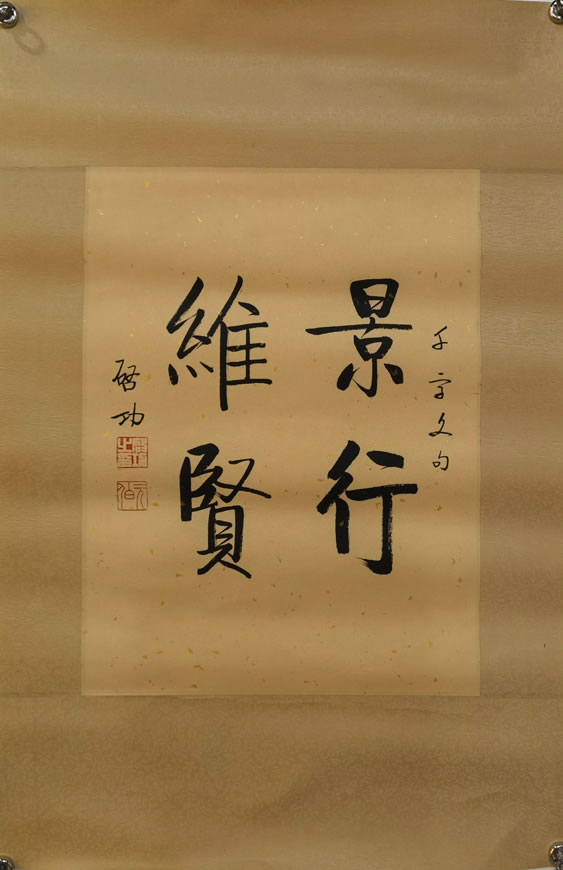 千字文句
景行
維賢
啓功
元白